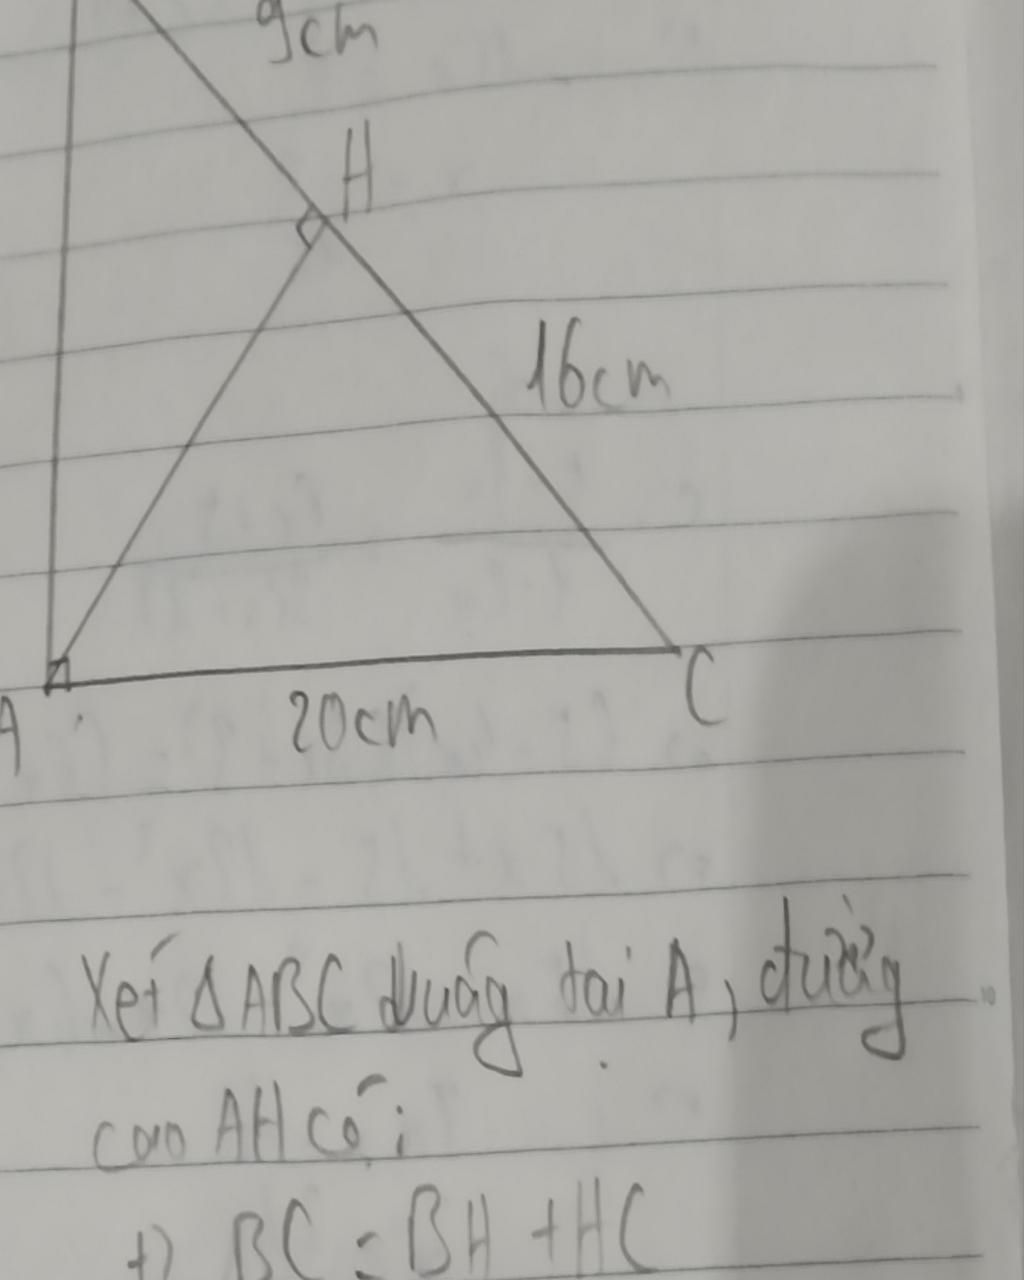 9cm
H
16cm
A
20cm
C
Xét ΔABC vuông tại A, đường
cao AH có:
+) BC = BH + HC